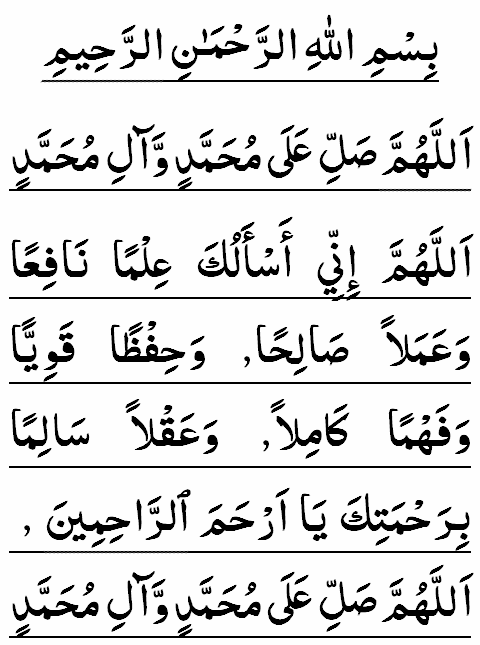 بِسْمِ اللهِ الرَّحْمَـٰنِ الرَّحِيمِ
اَللَّهُمَّ صَلِّ عَلَى مُحَمَّدٍ وَّآلِ مُحَمَّدٍ
اَللَّهُمَّ إِنِّي أَسْأَلُكَ عِلْمًا نَافِعًا
وَعَمَلاً صَالِحًا, وَحِفْظًا قَوِيًّا
وَفَهْمًا كَامِلاً, وَعَقْلاً سَالِمًا
بِرَحْمَتِكَ يَا اَرْحَمَ ٱلرَّاحِمِينَ ,
اَللَّهُمَّ صَلِّ عَلَى مُحَمَّدٍ وَّآلِ مُحَمَّدٍ